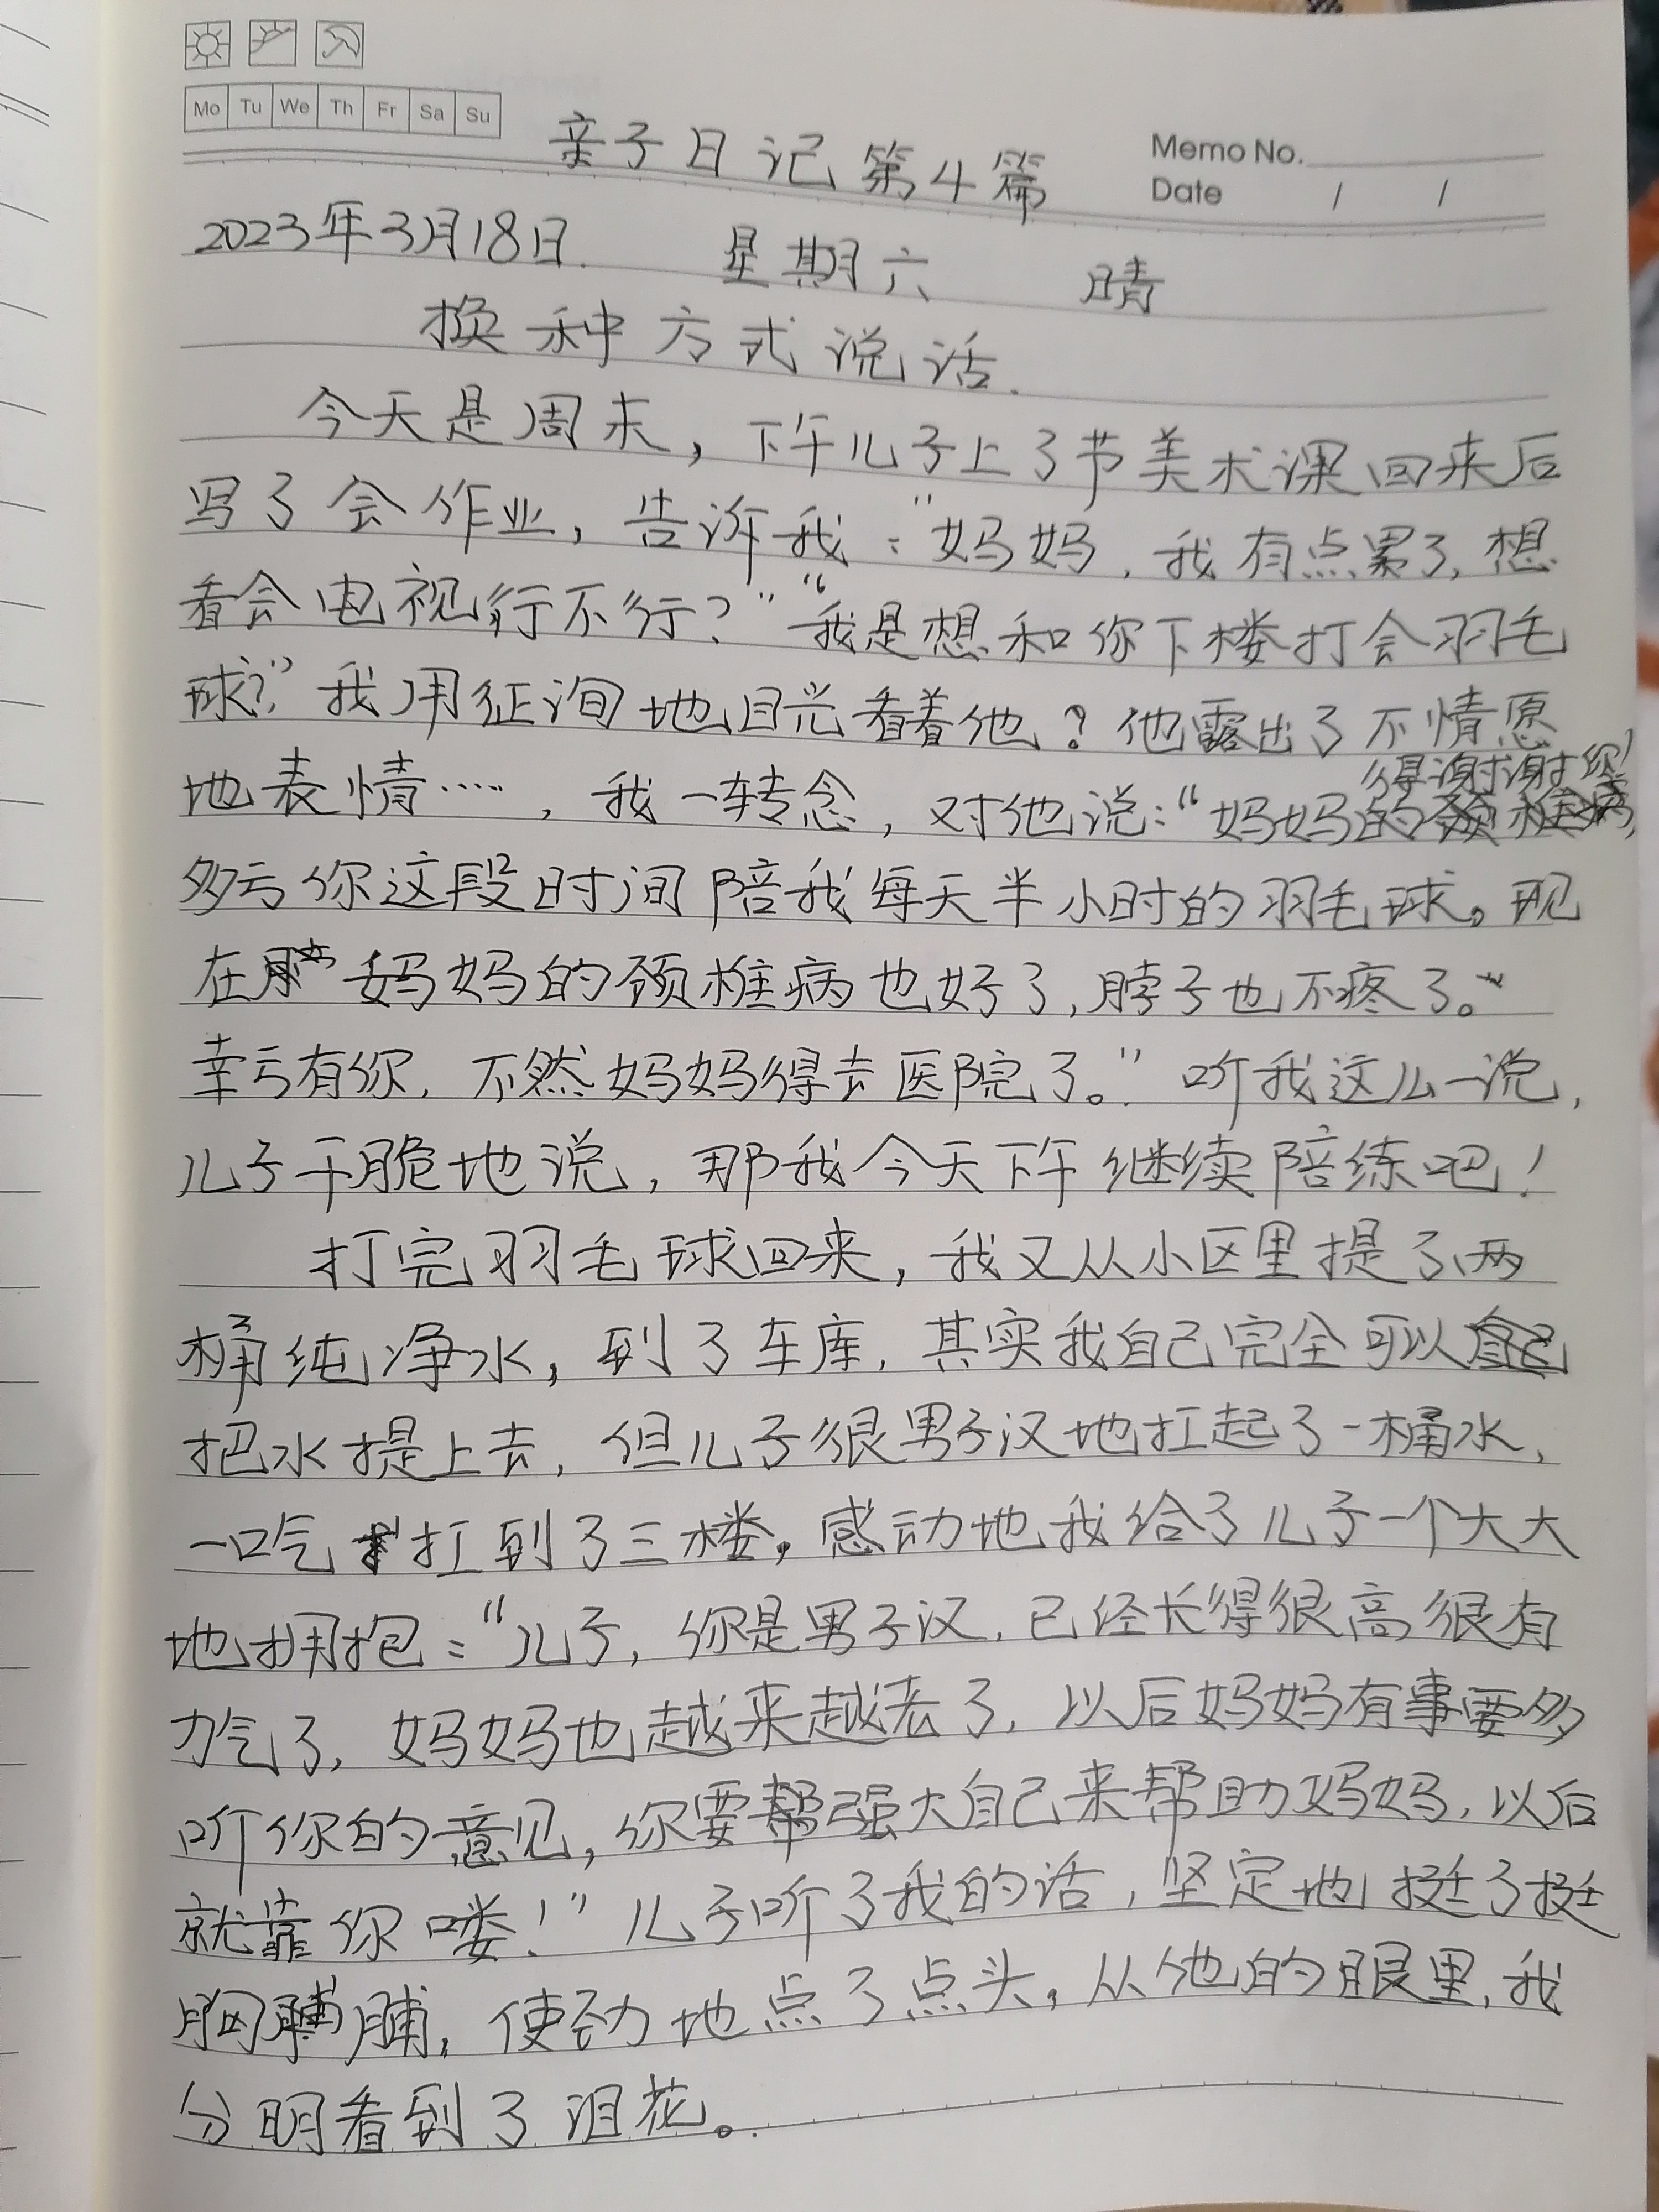 Mo Tu We Th Fr Sa Su
亲子日记第4篇
Memo No.
Date / /
2023年3月18日. 星期六 晴
换种方式说话.
今天是周末，下午儿子上了节美术课回来后
写了会作业，告诉我："妈妈，我有点累了，想
看会电视行不行？""我是想和你下楼打会羽毛
球？"我用征询地目光看着他？他露出了不情愿
地表情……，我一转念，对他说："妈妈得谢谢你，
多亏你这段时间陪我每天半小时的羽毛球。现
在妈妈的颈椎病也好了，脖子也不疼了。"
幸亏有你，不然妈妈得去医院了。"听我这么一说，
儿子干脆地说，那我今天下午继续陪练吧！
打完羽毛球回来，我又从小区里提了两
桶纯净水，到了车库，其实我自己完全可以
把水提上去，但儿子很男子汉地扛起了一桶水，
一口气扛到了三楼，感动地我给了儿子一个大大
地拥抱："儿子，你是男子汉，已经长得很高很有
力气了，妈妈也越来越老了，以后妈妈有事要多
听你的意见，你要强大自己来帮助妈妈，以后
就靠你喽！"儿子听了我的话，坚定地挺了挺
胸脯，使劲地点了点头，从他的眼里，我
分明看到了泪花。